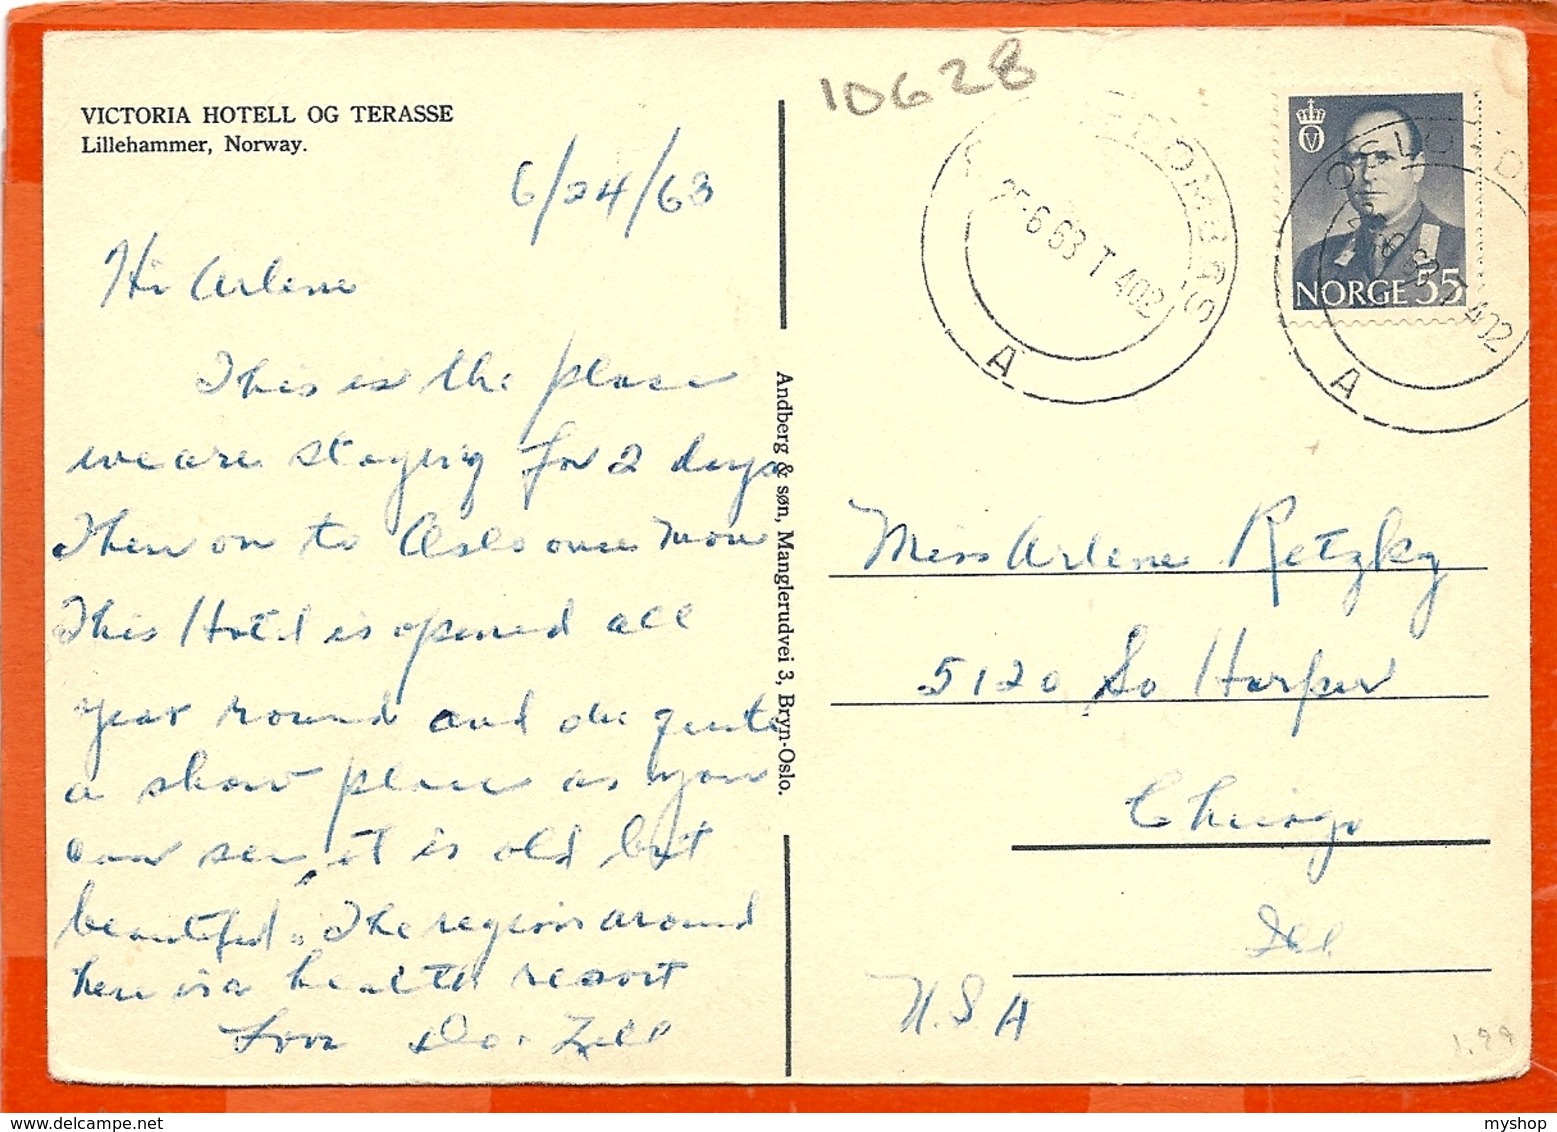 VICTORIA HOTELL OG TERASSE
Lillehammer, Norway.
6/24/63
Hi Arlene
This is the place
we are staying for 2 days
Then on to Oslo once more
This Hotel is opened all
year round and is quite
a show place as you
can see, it is old but
beautiful. The region around
here is a health resort
Love
Andberg & søn, Manglerudvei 3, Bryn-Oslo.
10628
25-6 63 T 402
A
OSLO
T 402
A
NORGE 55
Miss Arlene Retzky
5120 So Harper
Chicago
Ill
U.S.A
delcampe.net
myshop